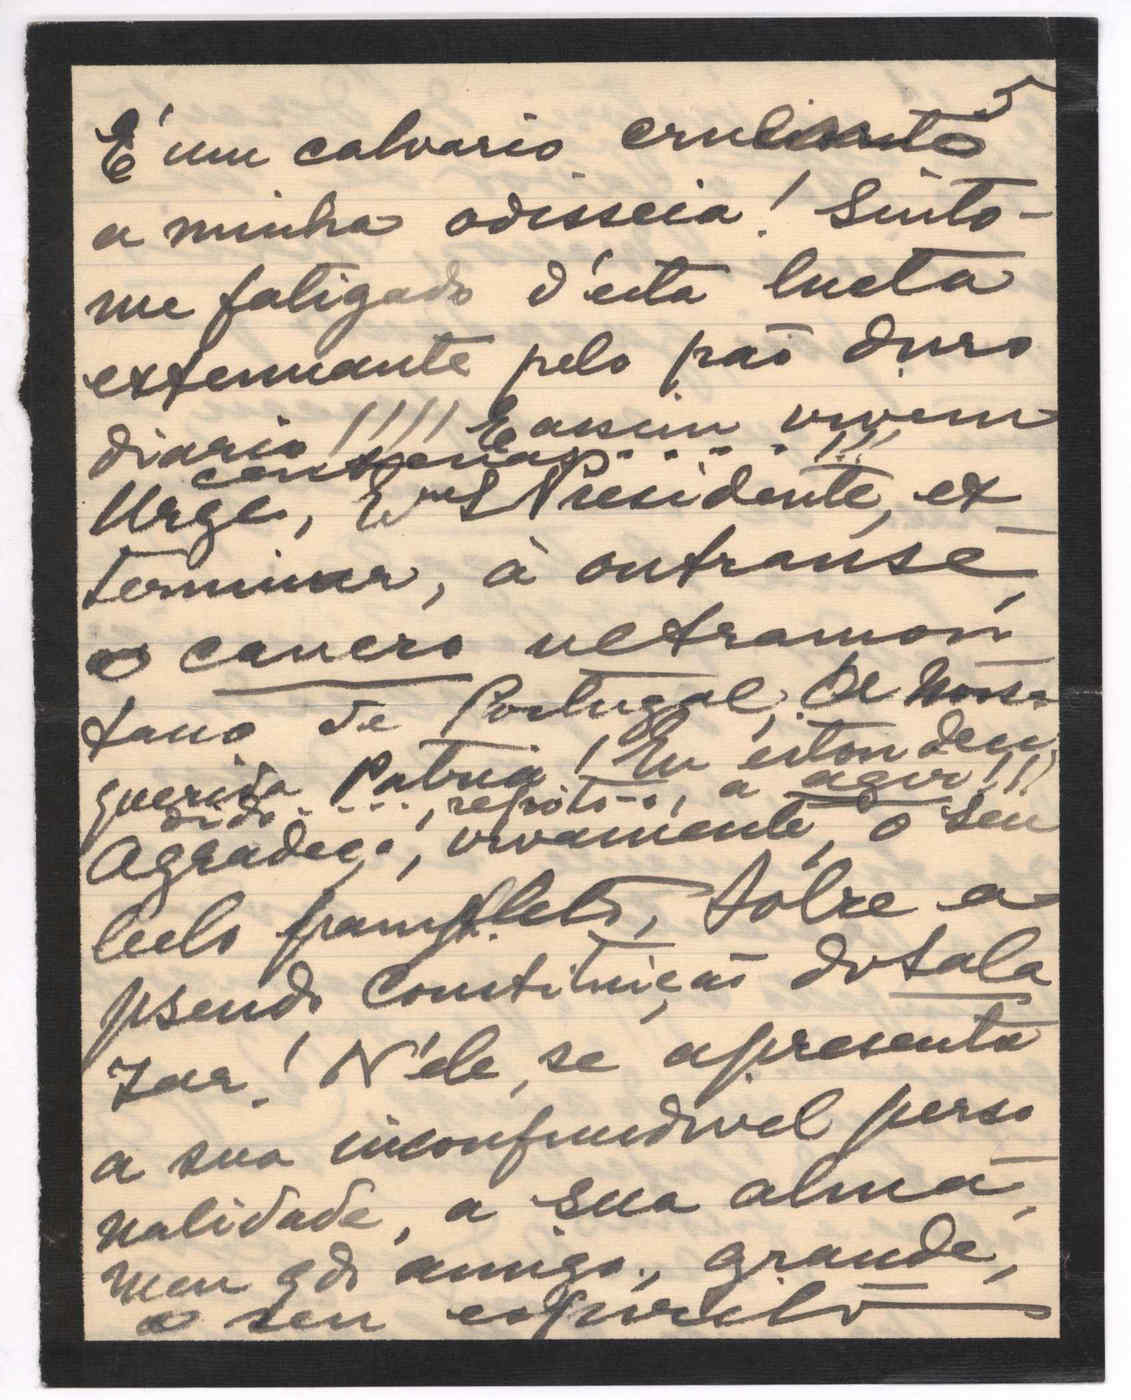 5
É um calvario cruciante
a minha odisseia! Sinto-
me fatigado d'ésta lucta
extenuante pelo paõ duro
diario!!!! E assim vivem
centenas.....!!!
Urge, Exmo S Presidente, ex
terminar, à outranse,
o cancro ultramon
tano de Portugal, De nossa
querida Patria! Eu estou deci
dido...., repito-o, a agir!!!
Agradeço, vivamente, o seu
belo pamfleto, sôbre a
pseudo Constituiçaõ do Sala
zar! N'éle, se apresenta
a sua inconfundivel perso
nalidade, a sua alma,
meu qdo amigo, grande,
o seu espirito